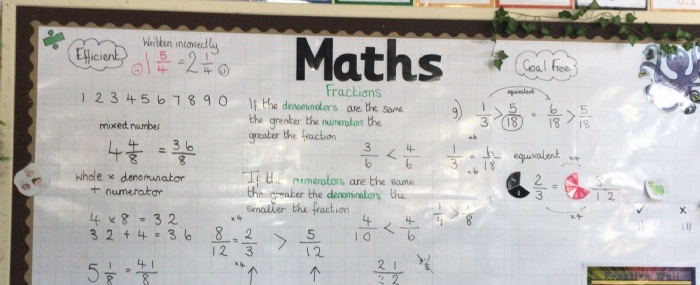 Efficient
Written incorrectly
1 5/4 = 2 1/4
Maths
Fractions
Goal Free
1 2 3 4 5 6 7 8 9 0
mixed number
4 4/8 = 36/8
whole x denominator
+ numerator
4 x 8 = 32
32 + 4 = 36
5 1/8 = 41/8
If the denominators are the same
the greater the numerator the
greater the fraction
3/6 < 4/6
numerators are the same
the greater the denominators the
smaller the fraction
4/10 < 4/6
x4
8/12 = 2/3 > 5/12
x4
equivalent
g) 1/3 > 5/18 = 6/18 > 5/18
x6
1/3 = 6/18 equivalent
x6
x4
2/3 = 8/12
x4
✓ x